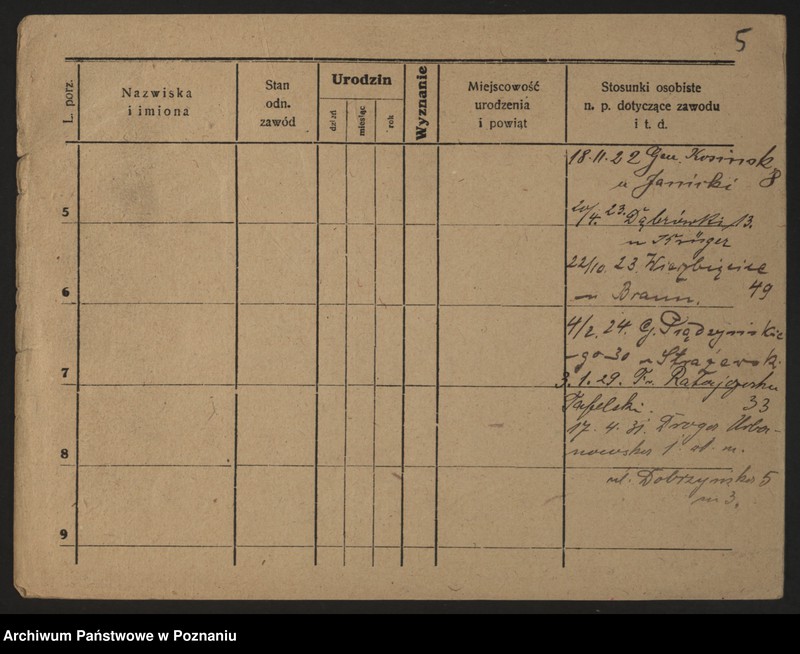 5
L. porz.
Nazwiska
i imiona
Stan
odn.
zawód
Urodzin
dzień
miesiąc
rok
Wyznanie
Miejscowość
urodzenia
i powiat
Stosunki osobiste
n. p. dotyczące zawodu
i t. d.
18.11.22 Gen. Kosińsk
u Janicki 8
5
20/4. 23. Dąbrówki 13.
u Krüger
22/10. 23. Wierzbięcice
6
u Braun. 49
4/2. 24. G. Prądzyńskie
-go 30 u
7
3.1.29. Fr. Ratajczaka
33
17. 4. 31. Droga Urba-
nowska 1
8
ul. Dobrzyńska 5
m 3.
9
Archiwum Państwowe w Poznaniu